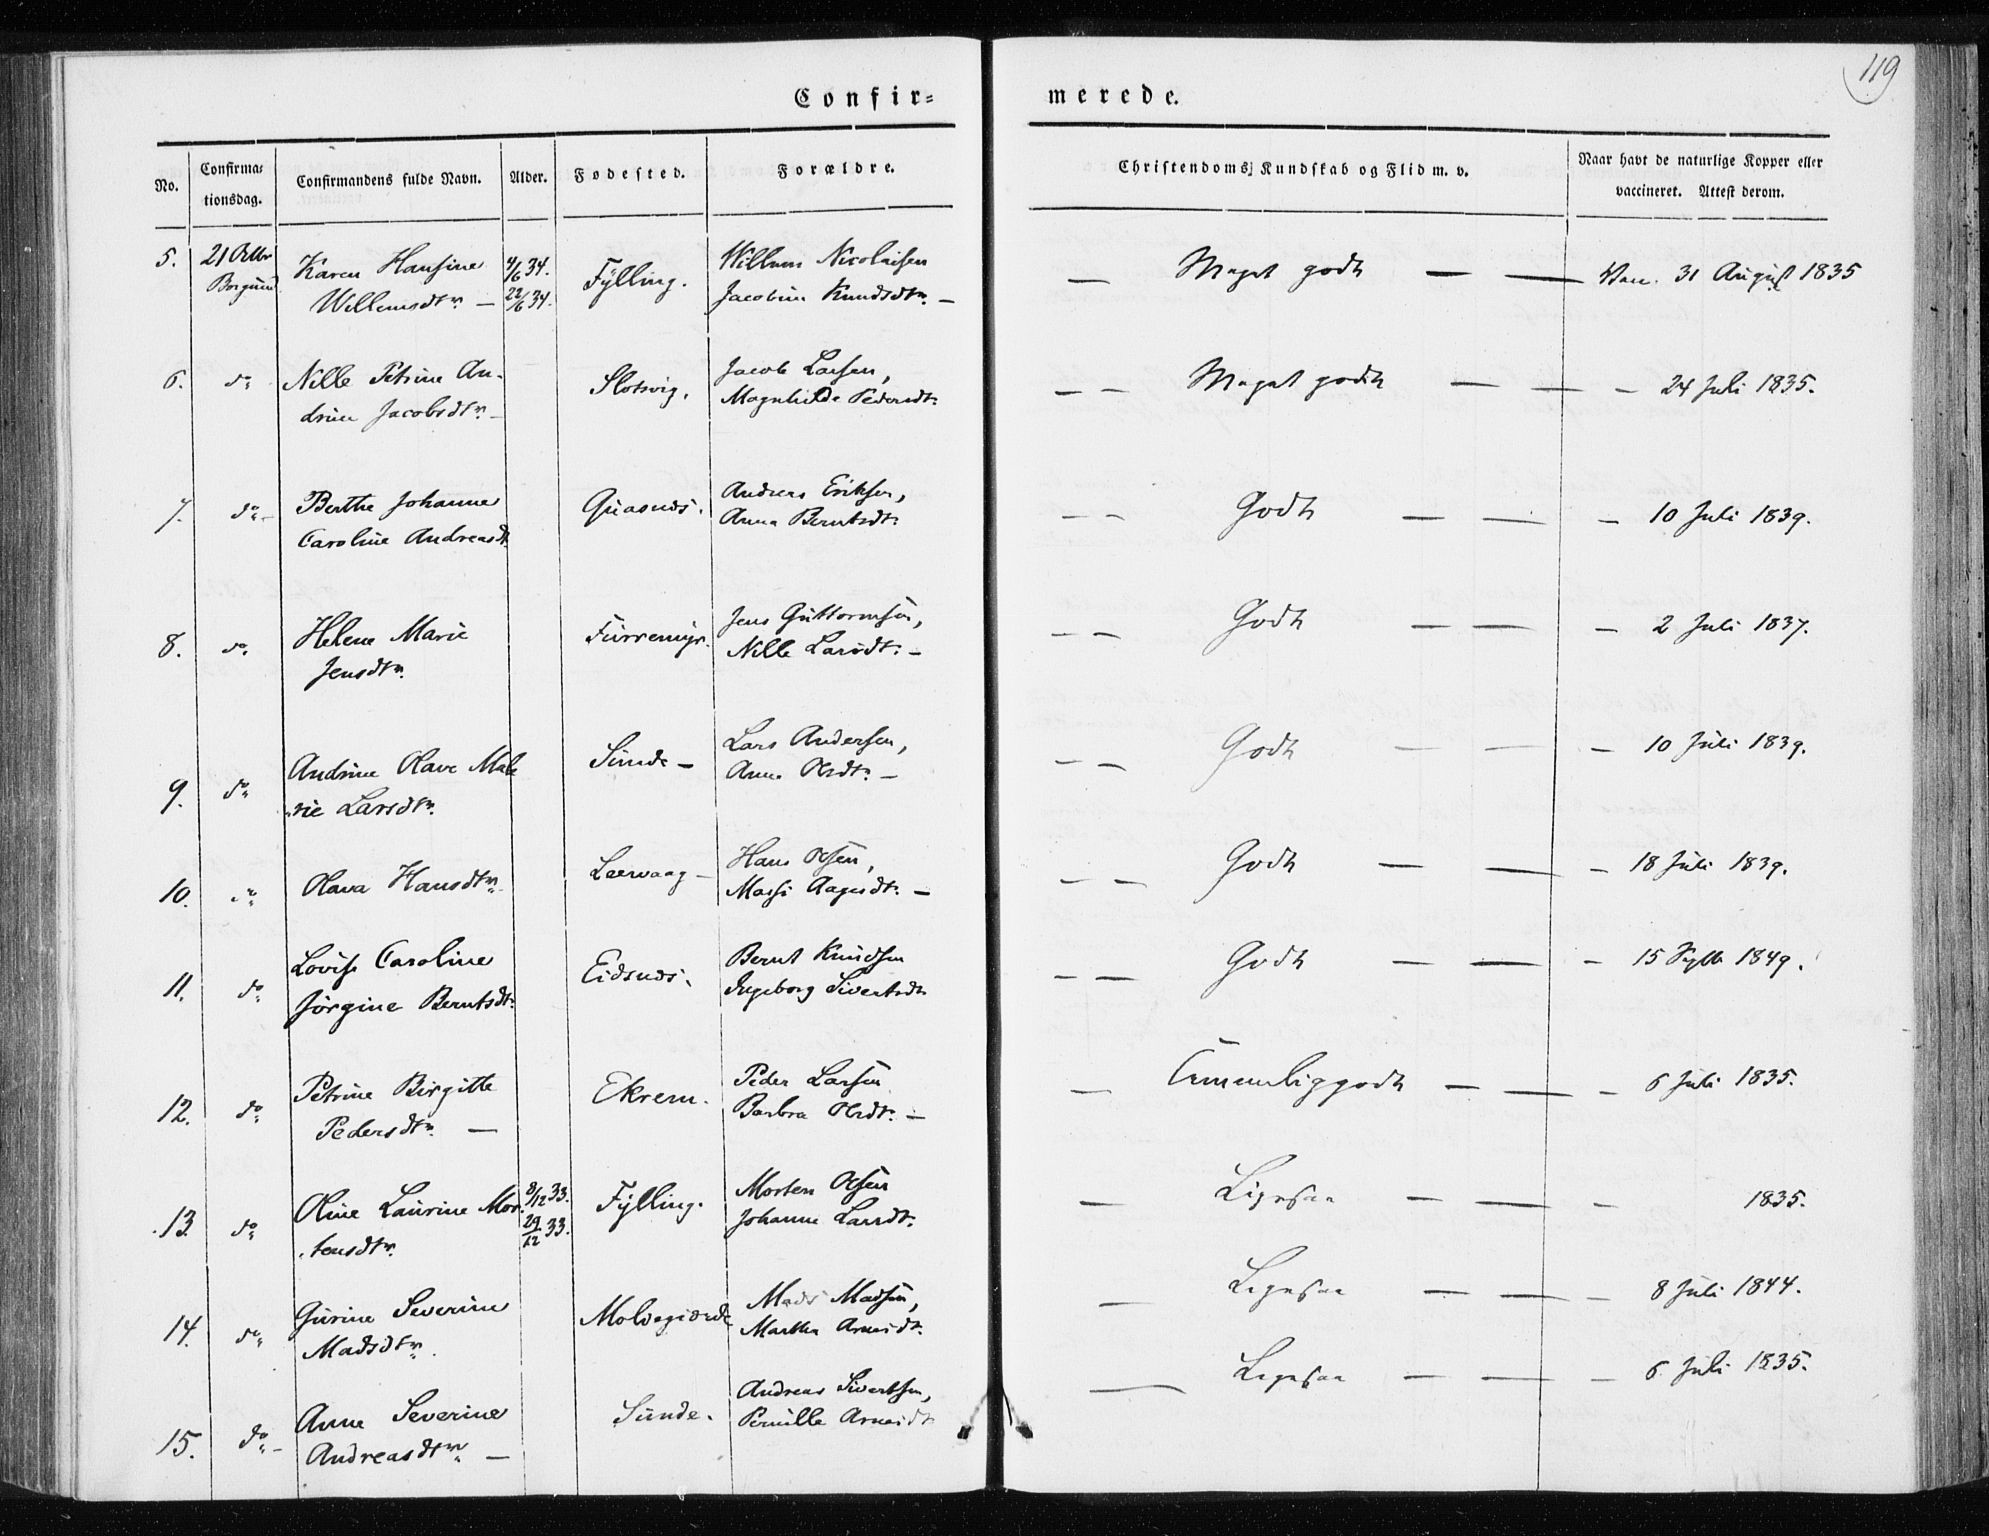 119
Confir=
merede.
No.
Confirma=
tionsdag.
Confirmandens fulde Navn.
Alder.
Fødested.
Forældre.
Christendoms Kundskab og Flid m. v.
Naar havt de naturlige Kopper eller
vaccineret. Attest derom.
5. 21 Octbr Karen Hansine 4/6 34. Fylling. Willum Nicolaisen — Meget godt — — Vacc. 31 August 1835
Borgund Willemsdtr. — 22/6 34. Jacobine Knudsdtr. —
6. do. Nille Petrine An- Slotsvig. Jacob Larsen, — — Meget godt — — — 24 Juli 1835.
drine Jacobsdtr. — Magnhilde Pedersdtr.
7. do. — Berthe Johanne Quasnæs. Andreas Eriksen, — — Godt — — — 10 Juli 1839.
Caroline Andreasdt. Anna Berntsdtr.
8. do. Helene Marie Furremyr. Jens Guttormsen, — — Godt — — — 2 Juli 1837.
Jensdtr. Nille Larsdtr. —
9. do. Andrine Olave Ma Sunde — Lars Andersen, — — Godt — — — 10 Juli 1839.
rie Larsdtr. Anne Olsdtr. —
10. do. Olava Hansdtr. Leervaag — Hans Olsen, — — Godt — — — 18 Juli 1839.
Massi Aagesdtr. —
11. do. Lovise Caroline Eidsnæs. Bernt Knudsen — — Godt — — — 15 1849.
Jørgine Berntsdtr. Ingeborg Sivertsdtr.
12. do. Petrine Birgitte Ekrem. Peder Larsen — Temmelig godt — — — 6 Juli 1835.
Pedersdtr. — Barbra Olsdtr. —
13. do. Oline Laurine Mor- 8/12 33. Fylling. Morten Olsen — Ligesaa — — — 1835.
tensdtr. 29/12 33. Johanne Larsdtr.
14. do. Gurine Severine Moldegiærde Mads Madsen, — Ligesaa — — — 8 Juli 1844.
Madsdtr. Martha Arnesdtr.
15. do. — Anne Severine Sunde. Andreas Sivertsen, — Ligesaa — — — 6 Juli 1835.
Andreasdtr. — Pernille Arnesdtr.